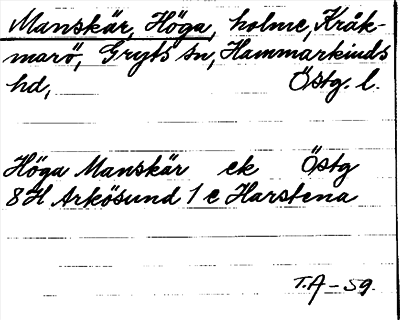 Manskär, Höga, holme, Kråk-
marö, Gryts sn, Hammarkinds
hd, Östg. l.
Höga Manskär ek Östg
8H Arkösund 1 e Harstena
T.A-59.